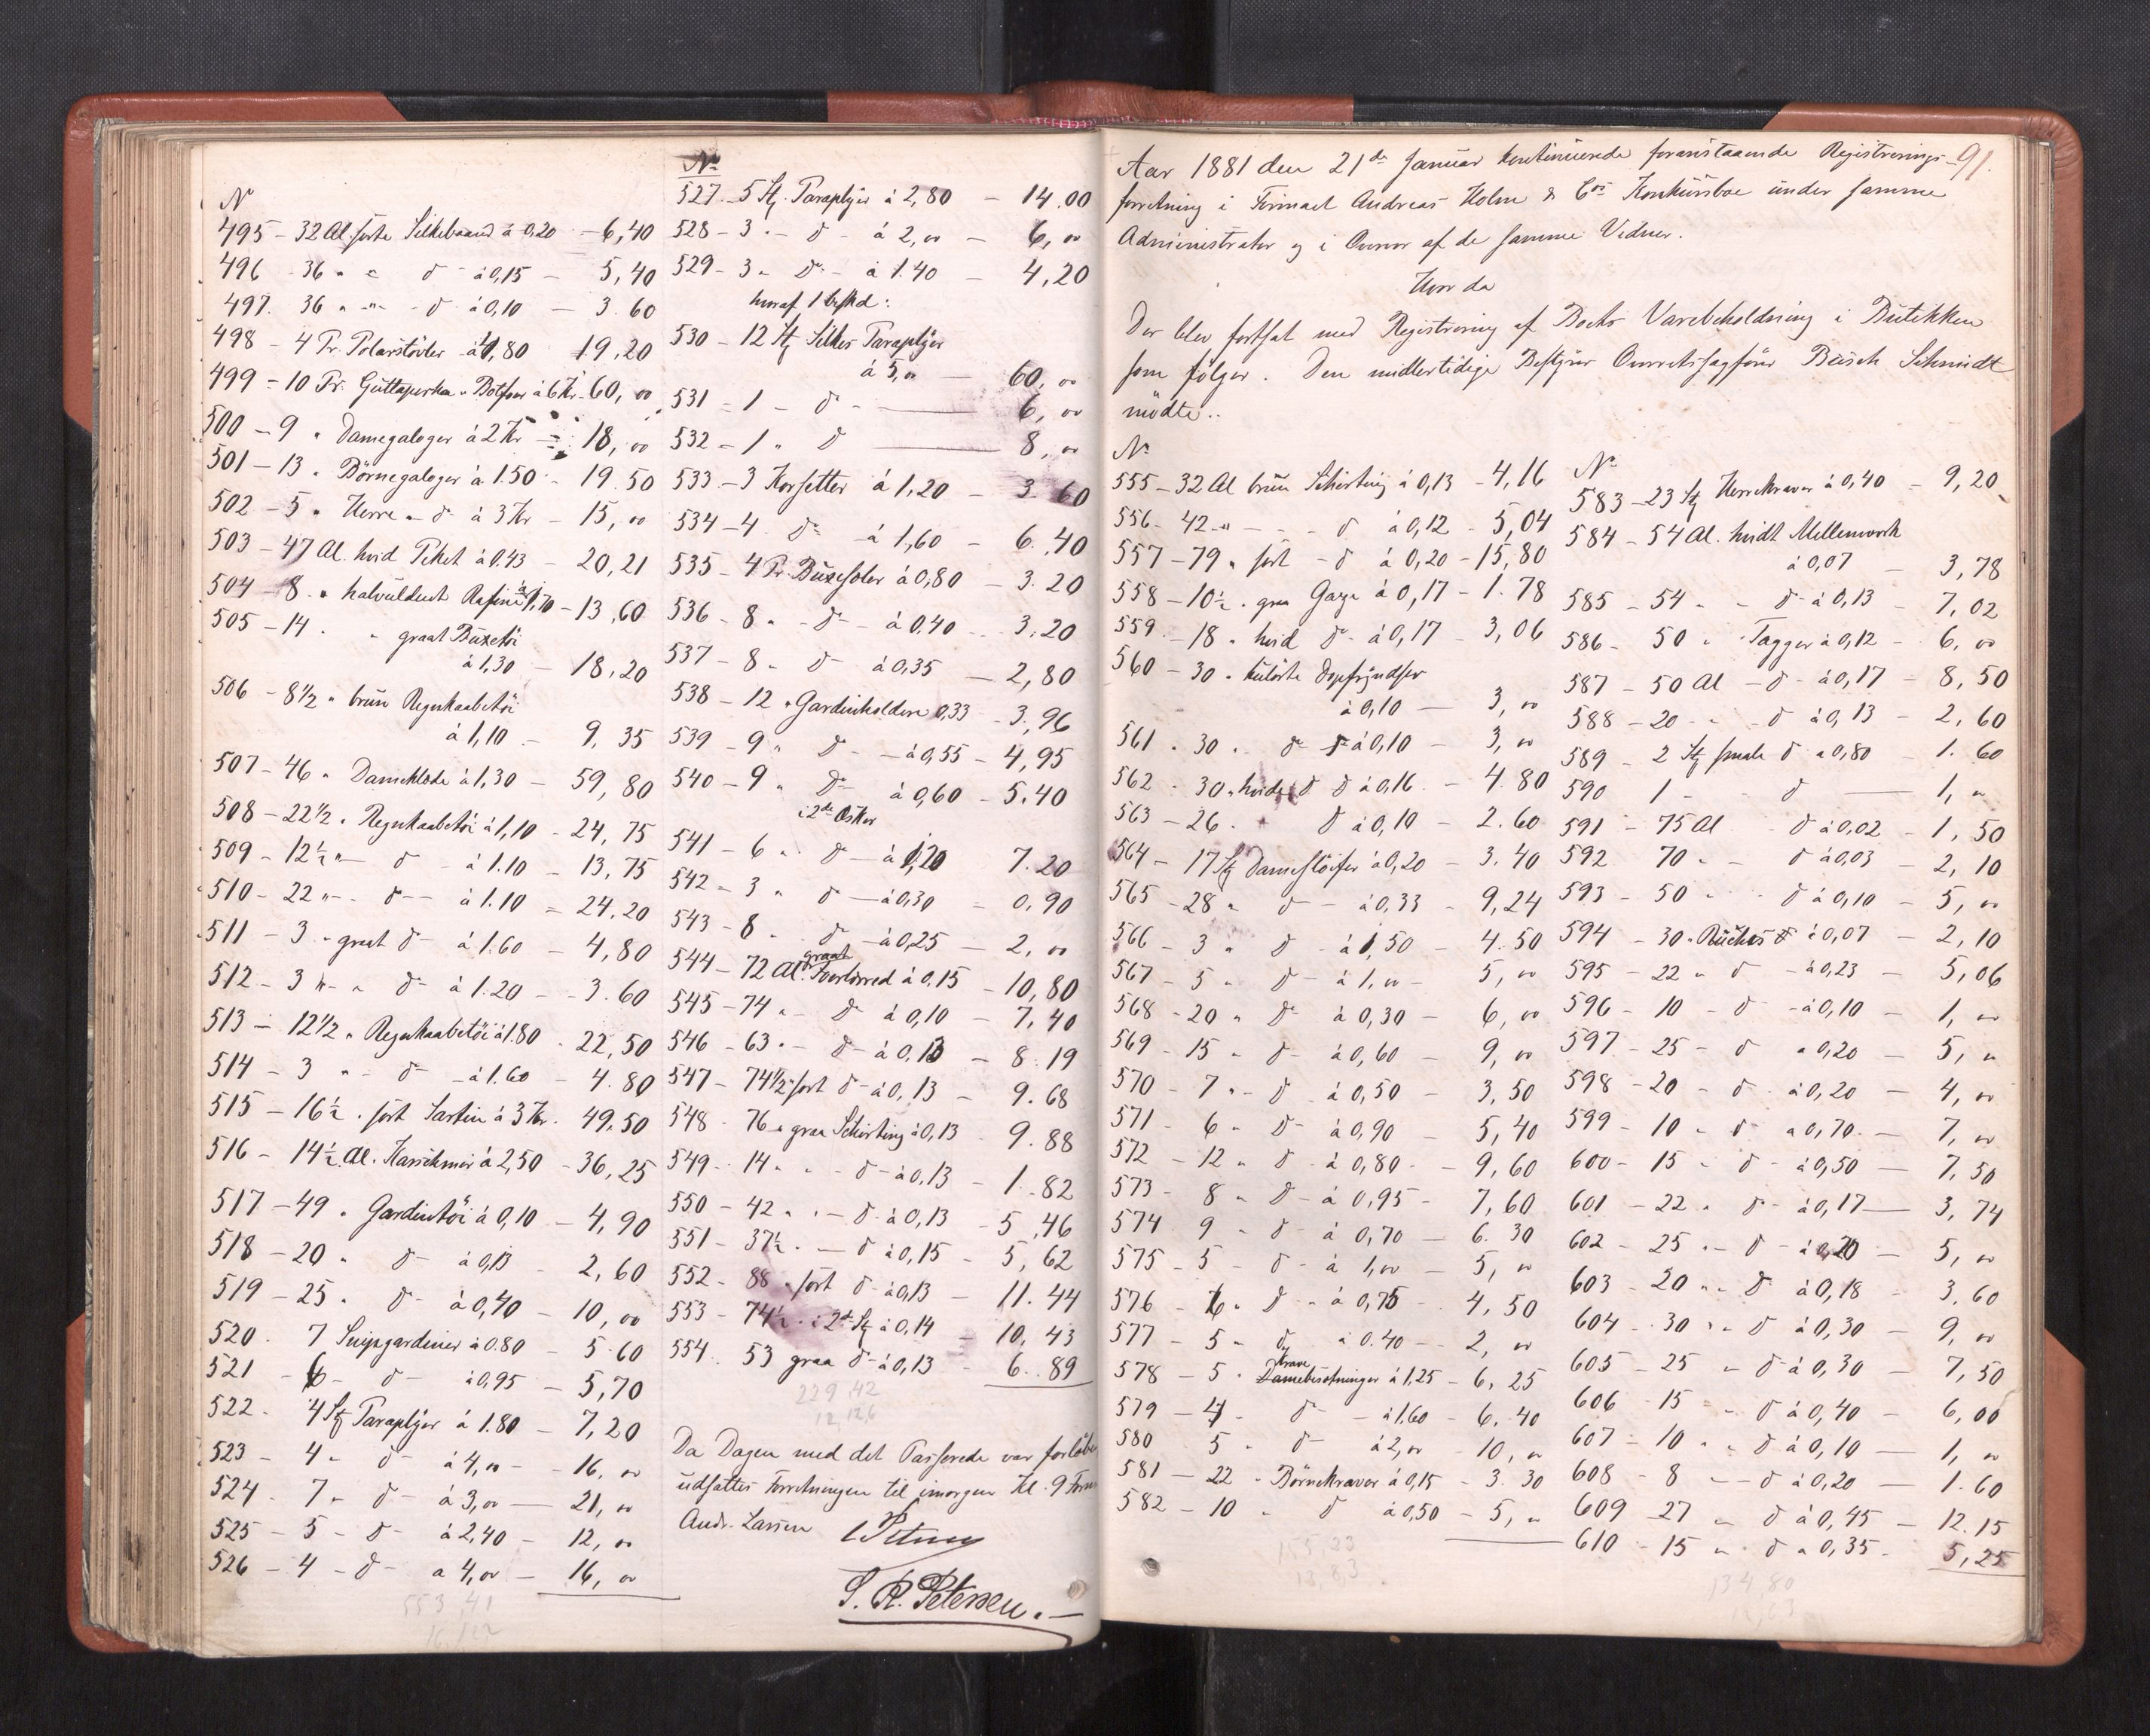 N
495 - 32 Al. sorte Silkebaand à 0,20 - 6,40
496 - 36 " " d° à 0,15 - 5,40
497. 36 " " - d° à 0,10 - 3.60
498 - 4 Pr. Polarstövler à 4,80 19,20
499 - 10 Pr. Guttaperka " Botforer à 6 Kr - 60, 00
500 - 9 " Damegaloger à 2 Kr - 18, 00
501 - 13 " Börnegaloger à 1.50 - 19.50
502 - 5 " Herre - d° à 3 Kr - 15, 00
503 - 47 Al. hvid Piket à 0.43 - 20,21
504 - 8 " halvuldent Rafiné à 1,70 - 13,60
505 - 14 " graat Buxetöi
à 1,30 - 18,20
506 - 8 1/2 " brun Regnkaabetöi
à 1,10 - 9, 35
507 - 46 " Dameklæde à 1,30 - 59, 80
508 - 22 1/2 " Regnkaabetöi à 1,10 - 24, 75
509 - 12 1/2 " - d° - à 1.10 - 13, 75
510 - 22 " - d° - à 1.10 = 24.20
511 - 3 " graat d° - à 1.60 - 4,80
512 - 3 " - " d° - à 1.20 - 3.60
513 - 12 1/2 " Regnkaabetöi à 1.80 - 22,50
514 - 3 " - d° - à 1.60 - 4.80
515 - 16 1/2 " sort Sartin à 3 Kr. 49.50
516 - 14 1/2 Al. Kasschmir à 2,50 - 36,25
517 - 49 " Gardintöi à 0,10 - 4,90
518 - 20 " d° - à 0,13 - 2,60
519 - 25 " d° - à 0,40 - 10, 00
520. 7 Snipgardiner à 0.80 - 5.60
521 - 6 - d° - à 0,95 - 5,70
522. 4 St. Paraplÿer à 1.80 - 7,20
523 - 4 - d° - à 4,00 - 16, 00
524. 7 - d° - à 3,00 - 21, 00
525 - 5 - d° - à 2,40 - 12, 00
526 - 4 - d° - a 4,00 - 16, 00
553,41
N°
527 - 5 St. Paraplÿer à 2,80 - 14.00
528 - 3 - d° - à 2,00 - 6, 00
529 - 3 " D° - à 1.40 - 4,20
hvoraf 1 beskd:
530 - 12 St. Silkes Paraplÿer
à 5,00 - 60, 00
531 - 1 - d° - 6, 00
532 - 1 " D° 8, 00
533 - 3 Korsetter à 1,20 - 3.60
534 - 4 d° - à 1,60 - 6.40
535 - 4 Pr. Buxeseler à 0,80 - 3.20
536 - 8 " - d° - à 0,40 - 3.20
537 - 8 " d° à 0,35 - 2,80
538 - 12 " Gardinholdere 0,33 - 3,96
539 - 9 " d° - à 0,55 - 4,95
540 - 9 " D° à 0,60 - 5.40
i 2de Æsker
541 - 6 " d° - à 1,20 7.20
542 - 3 " d° - à 0,30 - 0,90
543 - 8 " d° - à 0,25 - 2, 00
544 - 72 Al. graat Foerlærred à 0.15 - 10,80
545 - 74 " - D° à 0,10 - 7,40
546 - 63 " - d° - à 0,13 - 8.19
547 - 74 1/2 " sort d° - à 0,13 - 9.68
548 - 76 " graa Schirting à 0,13 - 9.88
549 - 14 " " - d° - à 0.13 - 1.82
550 - 42 " " - d° à 0,13 - 5,46
551 - 37 1/2 " - d° à 0,15 - 5,62
552 - 88 " sort d° - à 0,13 - 11.44
553 - 74 1/2 " i 2de St. à 0,14 - 10,43
554. 53 graa d° - à 0,13 - 6.89
229,42
Da Dagen med det Passerede var forlöben
udsattes Forretningen til imorgen Kl. 9 Form
Andr. Larsen
S. R. Petersen. -
91.
Aar 1881 den 21de Januar kontinuerede foranstaaende Registrerings-
forretning i Firmaet Andreas Holm & Cos Konkursboe under samme
Administrator og i Overvær af de samme Vidner.
Hvor da
Der blev fortsat med Registrering af Boets Varebeholdning i Butikken
som fölger. Den midlertidige Bestÿrer Overretssagförer Busch Schmidt
mödte..
N°
555 - 32 Al brun Schirting à 0,13 - 4,16
556 - 42 " - - d° à 0,12 - 5,04
557 - 79 " sort - d° à 0,20 - 15,80
558 - 10 1/2 " graa Gaze à 0,17 - 1.78
559 - 18 " hvid d° - à 0,17 - 3,06
560 - 30 " kulörte Dopfrÿndser
à 0,10 - 3, 00
561 - 30 " d° à 0,10 - 3, 00
562 - 30 " hvide d° à 0,16 - 4.80
563 - 26 " d° à 0,10 - 2.60
564 - 17 St. Dameslöifer à 0,20 - 3.40
565 - 28 " d° - à 0,33 - 9,24
566 - 3 " d° - à 1,50 - 4.50
567 - 5 " d° - à 1,00 - 5, 00
568 - 20 " D° à 0,30 - 6, 00
569 - 15 " d° - à 0,60 - 9, 00
570 - 7 " - d° à 0,50 - 3,50
571 - 6 " D° à 0,90 - 5,40
572 - 12 " d° à 0,80 - 9,60
573 - 8 " D° - à 0,95 - 7,60
574 9 - d° - à 0,70 - 6.30
575 - 5 - d° - à 1,00 - 5, 00
576 - 6 " d° - à 0,75 - 4,50
577 - 5 " d° à 0.40 - 2, 00
578 - 5 " Damekravebesætninger à 1,25 - 6,25
579 - 4 - d° - à 1.60 - 6.40
580 5 " d° - à 2,00 - 10, 00
581 - 22 " Börnekraver à 0,15 - 3.30
582 - 10 " d° à 0,50 - 5, "
N°
583 - 23 St. Herrekraver à 0,40 - 9,20
584 - 54 Al. hvidt Mellemværk
à 0,07 - 3,78
585 - 54 " - d° - à 0,13 - 7,02
586 - 50 " Tagger à 0,12 - 6, 00
587 - 50 Al - d° - à 0,17 - 8,50
588 - 20 - " - d° à 0,13 - 2,60
589 - 2 St. smale d° à 0,80 - 1.60
590 1 - - d° - 1, "
591 - 75 Al d° à 0,02 - 1,50
592 70 " - d° à 0,03 - 2,10
593 - 50 " d° à 0,10 - 5, 00
594 - 30 " Rüches à 0,07 - 2,10
595 - 22 " d° - à 0,23 - 5,06
596 - 10 - d° - à 0,10 - 1, 00
597 - 25 - d° à 0,20 - 5, "
598 - 20 - d° à 0,20 - 4, 00
599 - 10 - d° - à 0,70 - 7, 00
600 - 15 " d° - à 0,50 - 7,50
601 - 22 " d° - à 0,17 - 3,74
602 - 25 " - d° - à 0,20 - 5, 00
603 - 20 " " d° à 0,18 - 3,60
604 - 30 " - d° à 0,30 - 9, 00
605 - 25 " d° à 0,30 - 7,50
606 - 15 " - d° à 0,40 - 6,00
607 - 10 " " d° à 0,10 - 1, 00
608 - 8 - d° à 0,20 - 1.60
609 - 27 " d° à 0,45 - 12.15
610 - 15 " d° à 0,35 - 5,25
134,80